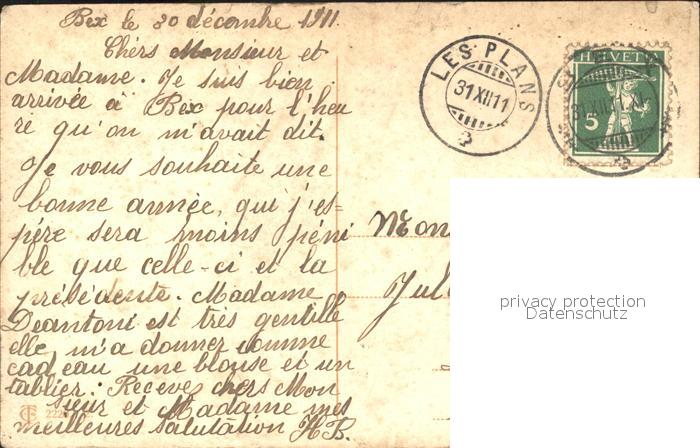 Bex le 30 décembre 1911.
Chers Monsieur et
Madame. Je suis bien
arrivée à Bex pour l'heu
re qu'on m'avait dit.
Je vous souhaite une
bonne année, qui j'es=
père sera moins péni
ble que celle-ci et la
présédente. Madame
Deantoni est très gentille
elle m'a donner comme
cadeau une blouse et un
tablier. Receve chers Mon
sieur et Madame mes
meilleures salutation HB.
LES PLANS
31 XII 11
HELVETIA
5
Mon
Jul
privacy protection
Datenschutz